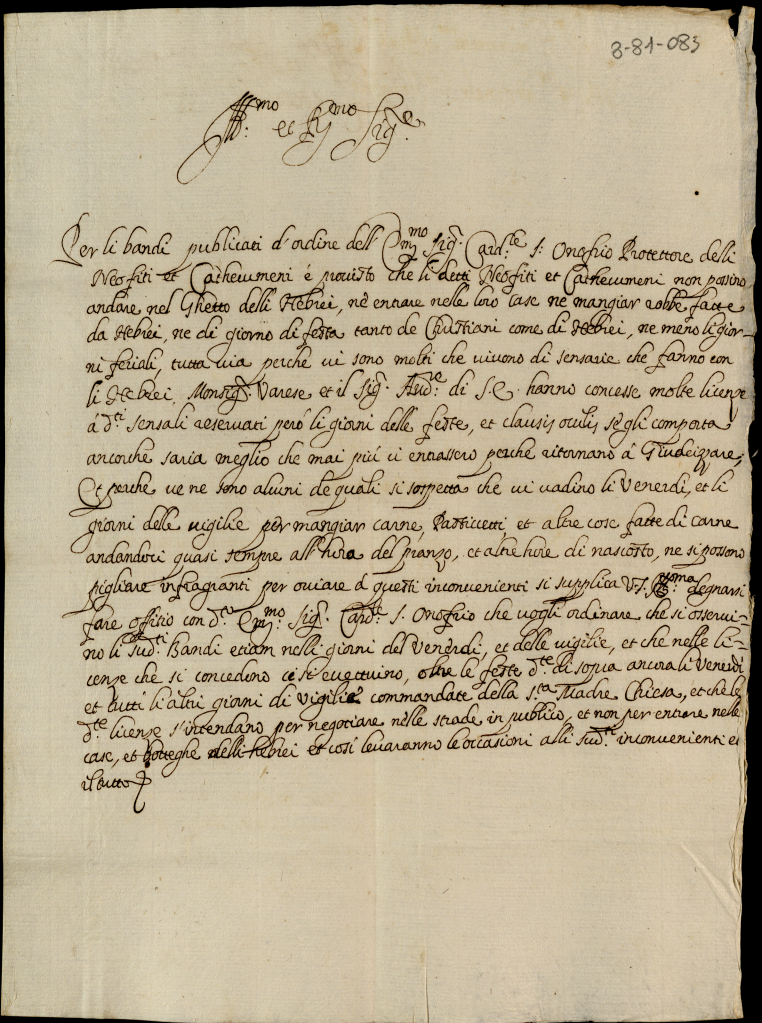 8-81-083
Ill.mo et R.mo Sig.re
Per li bandi publicati d'ordine dell' Em.mo Sig.r Card.le S. Onofrio Protettore delli
Neofiti et Cathecumeni è provisto che li detti Neofiti et Cathecumeni non possino
andare nel Ghetto delli Hebrei, nè entrare nelle loro case ne mangiar robbe fatte
da Hebrei, ne di giorno di festa tanto de Christiani come di Hebrei, ne meno li gior-
ni feriali, tutta via perche vi sono molti che vivono di sensarie che fanno con
li Hebrei, Monsig.r Varese et il Sig.r Aud.re di S.E. hanno concesse molte licenze
á d.ti sensali reservati peró li giorni delle feste, et clausis oculis sè gli comporta
ancorche saria meglio che mai piú vi entrassero perche ritornano á Giudeizzare,
Et perche ve ne sono alcuni de quali si sospetta che vi vadino li Venerdi, et li
giorni delle vigilie per mangiar carne, Pasticcetti et altre cose fatte di carne
andandoci quasi sempre all'hora del pranzo, et altre hore di nascosto, ne si possono
pigliare infragranti per oviare á questi inconvenienti si supplica V.S. Ill.ma degnarsi
fare offitio con d.to Em.mo Sig.r Card.le S. Onofrio che vogli ordinare che si osservi-
no li sud.ti Bandi etiam nelli giorni del Venerdi, et delle vigilie, et che nelle li-
cenze che si concedono ci si eccettuino, oltre le feste d.te di sopra ancora li Venerdi
et tutti li altri giorni di vigilie commandate della S.ta Madre Chiesa, et che le
d.te licenze s'intendano per negotiare nelle strade in publico, et non per entrare nelle
case, et botteghe delli hebrei et cosi levaranno le occasioni alli sud.ti inconvenienti et
il tutto